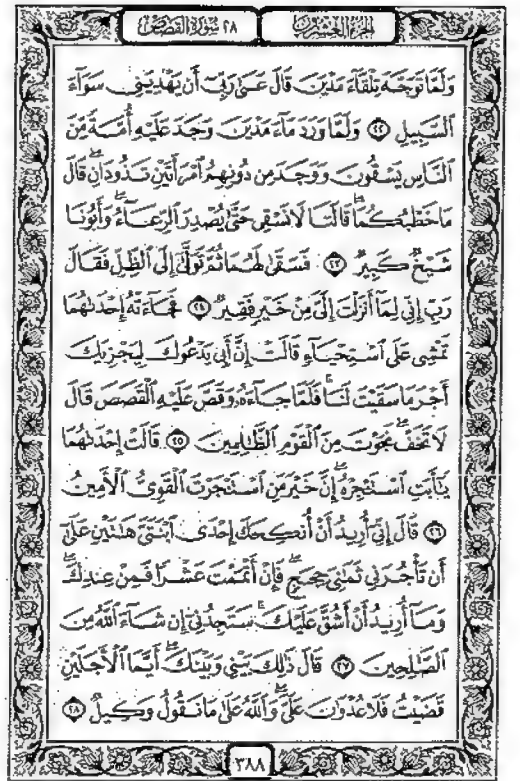 الجزء العشرون
٢٨ سورة القصص
وَلَمَّا تَوَجَّهَ تِلْقَآءَ مَدْيَنَ قَالَ عَسَىٰ رَبِّىٓ أَن يَهْدِيَنِى سَوَآءَ
ٱلسَّبِيلِ ٢٢ وَلَمَّا وَرَدَ مَآءَ مَدْيَنَ وَجَدَ عَلَيْهِ أُمَّةً مِّنَ
ٱلنَّاسِ يَسْقُونَ وَوَجَدَ مِن دُونِهِمُ ٱمْرَأَتَيْنِ تَذُودَانِۖ قَالَ
مَا خَطْبُكُمَاۖ قَالَتَا لَا نَسْقِى حَتَّىٰ يُصْدِرَ ٱلرِّعَآءُۖ وَأَبُونَا
شَيْخٌ كَبِيرٌ ٢٣ فَسَقَىٰ لَهُمَا ثُمَّ تَوَلَّىٰٓ إِلَى ٱلظِّلِّ فَقَالَ
رَبِّ إِنِّى لِمَآ أَنزَلْتَ إِلَىَّ مِنْ خَيْرٍ فَقِيرٌ ٢٤ فَجَآءَتْهُ إِحْدَىٰهُمَا
تَمْشِى عَلَى ٱسْتِحْيَآءٍ قَالَتْ إِنَّ أَبِى يَدْعُوكَ لِيَجْزِيَكَ
أَجْرَ مَا سَقَيْتَ لَنَاۚ فَلَمَّا جَآءَهُۥ وَقَصَّ عَلَيْهِ ٱلْقَصَصَ قَالَ
لَا تَخَفْۖ نَجَوْتَ مِنَ ٱلْقَوْمِ ٱلظَّٰلِمِينَ ٢٥ قَالَتْ إِحْدَىٰهُمَا
يَٰٓأَبَتِ ٱسْتَـْٔجِرْهُۖ إِنَّ خَيْرَ مَنِ ٱسْتَـْٔجَرْتَ ٱلْقَوِىُّ ٱلْأَمِينُ
٢٦ قَالَ إِنِّىٓ أُرِيدُ أَنْ أُنكِحَكَ إِحْدَى ٱبْنَتَىَّ هَٰتَيْنِ عَلَىٰٓ
أَن تَأْجُرَنِى ثَمَٰنِىَ حِجَجٍۖ فَإِنْ أَتْمَمْتَ عَشْرًا فَمِنْ عِندِكَۖ
وَمَآ أُرِيدُ أَنْ أَشُقَّ عَلَيْكَۚ سَتَجِدُنِىٓ إِن شَآءَ ٱللَّهُ مِنَ
ٱلصَّٰلِحِينَ ٢٧ قَالَ ذَٰلِكَ بَيْنِى وَبَيْنَكَۖ أَيَّمَا ٱلْأَجَلَيْنِ
قَضَيْتُ فَلَا عُدْوَٰنَ عَلَىَّۖ وَٱللَّهُ عَلَىٰ مَا نَقُولُ وَكِيلٌ ٢٨
٣٨٨